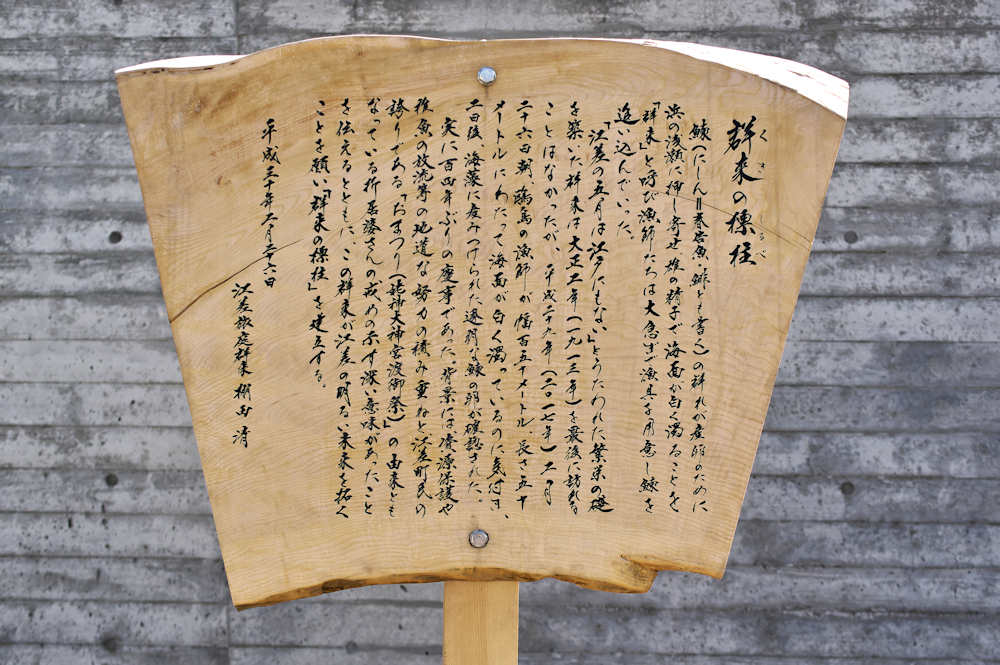 群来の標柱
くき しるべ
鰊(にしん=春告魚、鯡とも書く)の群れが産卵のために
浜の浅瀬に押し寄せ、雄の精子で海面が白く濁ることを
「群来」と呼び漁師たちは大急ぎで漁具を用意し鰊を
追い込んでいった。
「江差の五月は江戸にもない」とうたわれた繁栄の礎
を築いた群来は大正二年(一九一三年)を最後に訪れる
ことはなかったが、平成二十九年(二〇一七年)二月
二十六日朝、鴎島の漁師が幅百五十メートル、長さ五十
メートルにわたって海面が白く濁っているのに気付き、
二日後、海藻に産みつけられた透明な鰊の卵が確認された。
実に百四年ぶりの慶事であった。背景には資源保護や
稚魚の放流等の地道な努力の積み重ねと江差町民の
誇りである「おまつり(姥神大神宮渡御祭)」の由来とも
なっている折居婆さんの戒めの示す深い意味があったこと
を伝えるとともに、この群来が江差の明るい未来を拓く
ことを願い「群来の標柱」を建立する。
平成三十年二月二十六日
江差旅庭群来 棚田 清